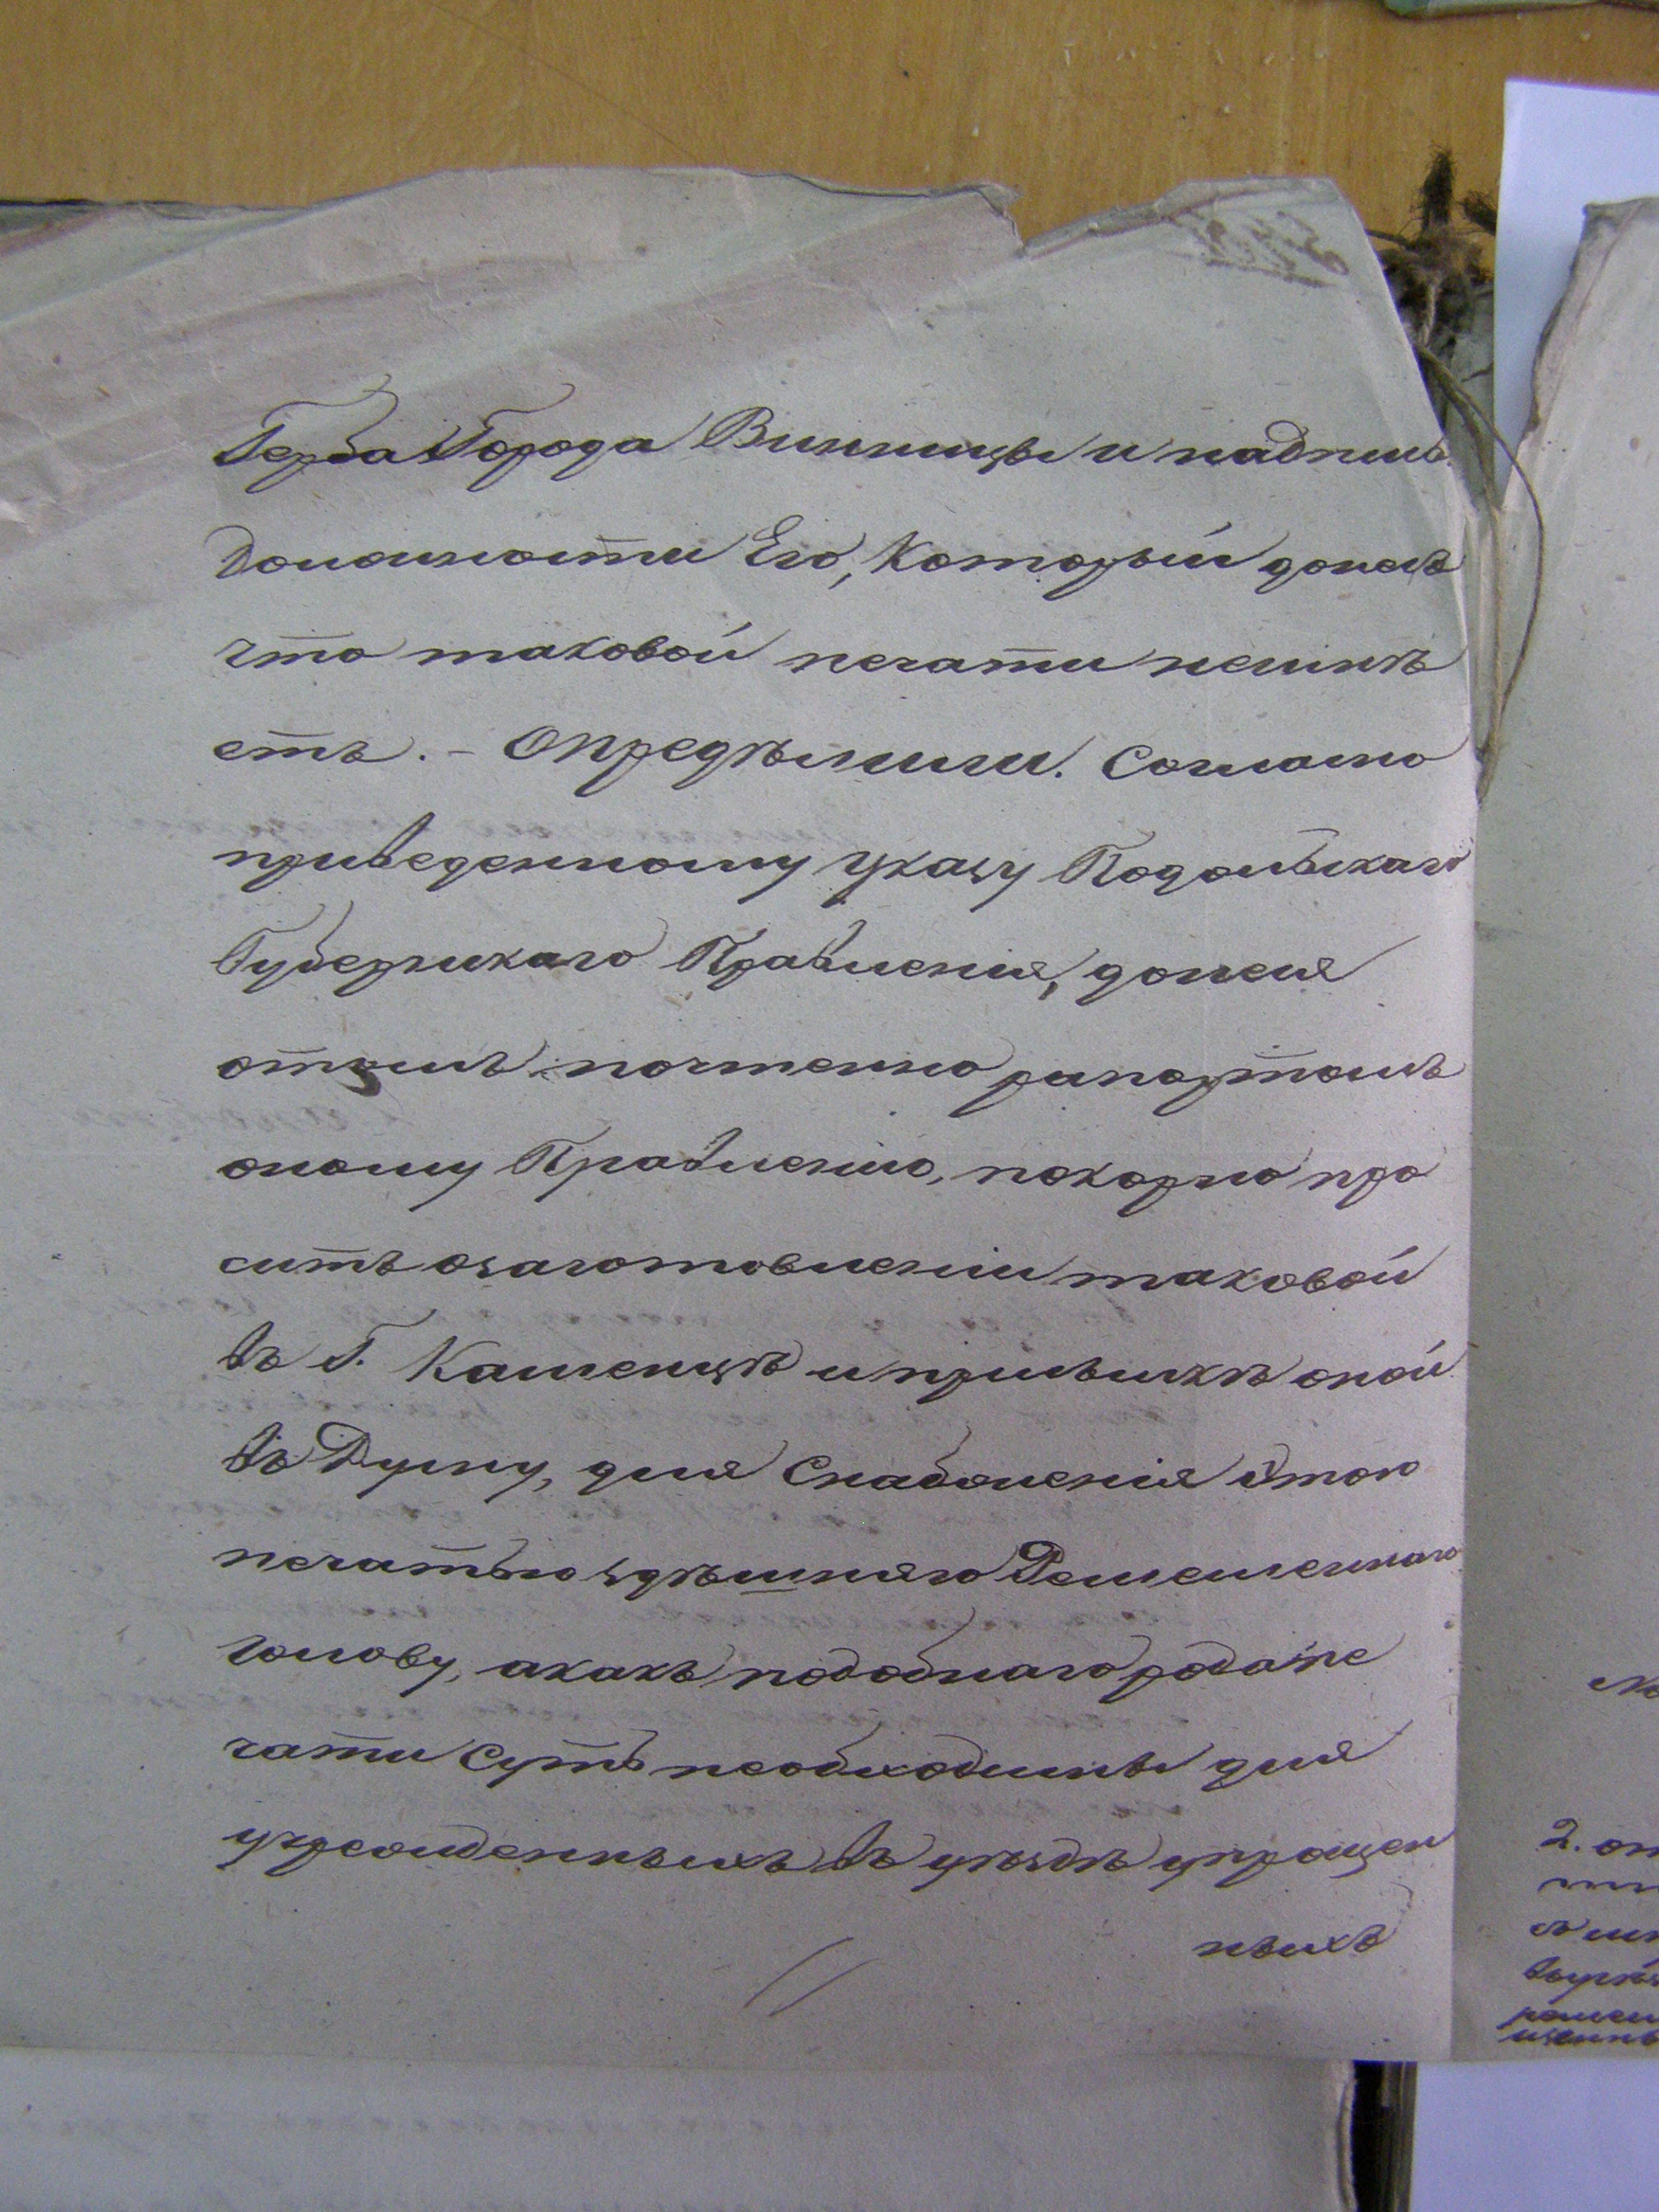 Герба Города Винницы и надпись
должности Его, Который донесъ
что таковой печати неимѣ
етъ. – Опредѣлили. Согласно
приведенному указу Подольскаго
Губернскаго Правленія, донеся
отомъ почтенно рапортомъ
оному Правленію, покорно про
сить озаготовленіи таковой
въ Г. Каменцѣ и присылкѣ оной
въ Думу, для Снабженія этою
печатью здѣшняго Ремесленнаго
голову, акакъ подобнаго рода пе
чати суть необходимы для
учрежденныхъ въ уѣздѣ упрощен
ныхъ
2. от